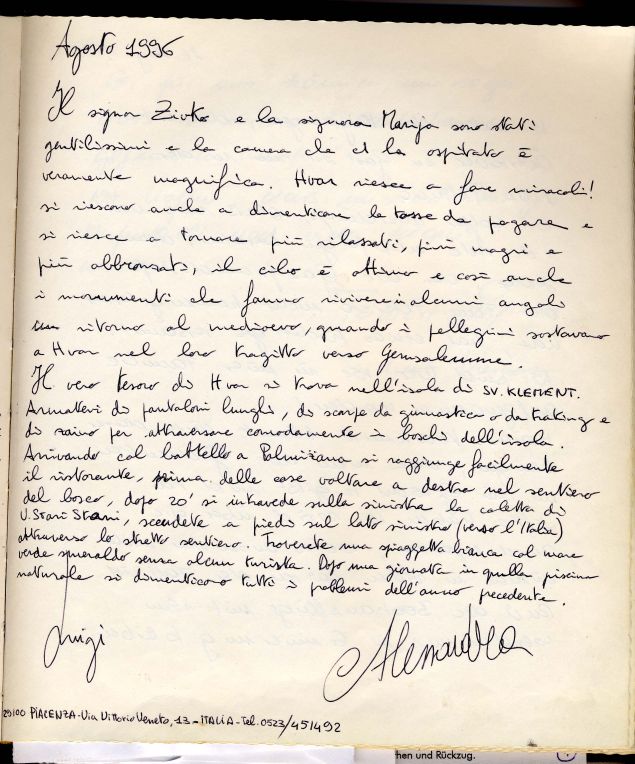 Agosto 1996
Il signor Zivko e la signora Marija sono stati
gentilissimi e la camera che ci ha ospitato è
veramente magnifica. Hvar riesce a fare miracoli!
si riescono anche a dimenticare le tasse da pagare e
si riesce a tornare più rilassati, più magri e
più abbronzati, il cibo è ottimo e così anche
i monumenti che fanno rivivere in alcuni angoli
un ritorno al medioevo, quando i pellegrini sostavano
a Hvar nel loro tragitto verso Gerusalemme.
Il vero tesoro di Hvar si trova nell'isola di SV. KLEMENT.
Armatevi di pantaloni lunghi, di scarpe da ginnastica o da traking e
di zaino per attraversare comodamente i boschi dell'isola.
Arrivando col battello a Palmižana si raggiunge facilmente
il ristorante, prima delle case voltare a destra nel sentiero
del bosco, dopo 20' si intravede sulla sinistra la caletta di
U. Stari Stani, scendete a piedi sul lato sinistro (verso l'Italia)
attraverso lo stretto sentiero. Troverete una spiaggetta bianca col mare
verde smeraldo senza alcun turista. Dopo una giornata in quella piscina
naturale si dimenticano tutti i problemi dell'anno precedente.
Luigi Alessandra
29100 PIACENZA - Via Vittorio Veneto, 13 - ITALIA - Tel. 0523/451492
hen und Rückzug.